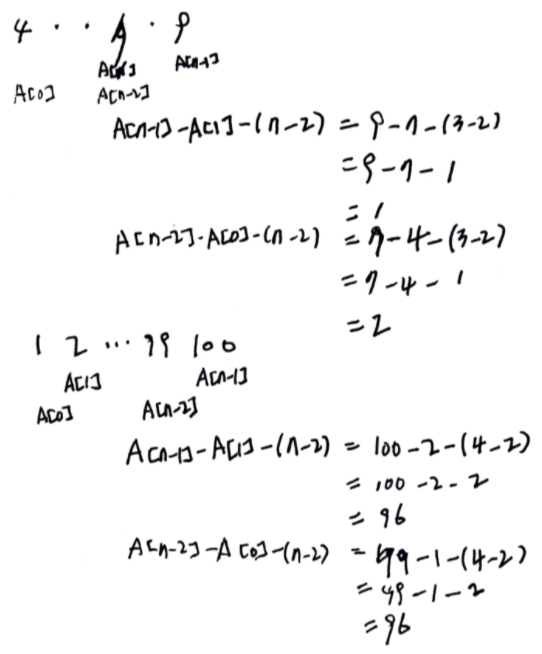 4 · · 7 · 9
A[1] A[n-1]
A[0] A[n-2]
A[n-1]-A[1]-(n-2) = 9-7-(3-2)
=9-7-1
=1
A[n-2]-A[0]-(n-2) =7-4-(3-2)
=7-4-1
=2
1 2 ... 99 100
A[1] A[n-1]
A[0] A[n-2]
A[n-1]-A[1]-(n-2) = 100-2-(4-2)
= 100-2-2
= 96
A[n-2]-A[0]-(n-2) = 99-1-(4-2)
= 99-1-2
=96